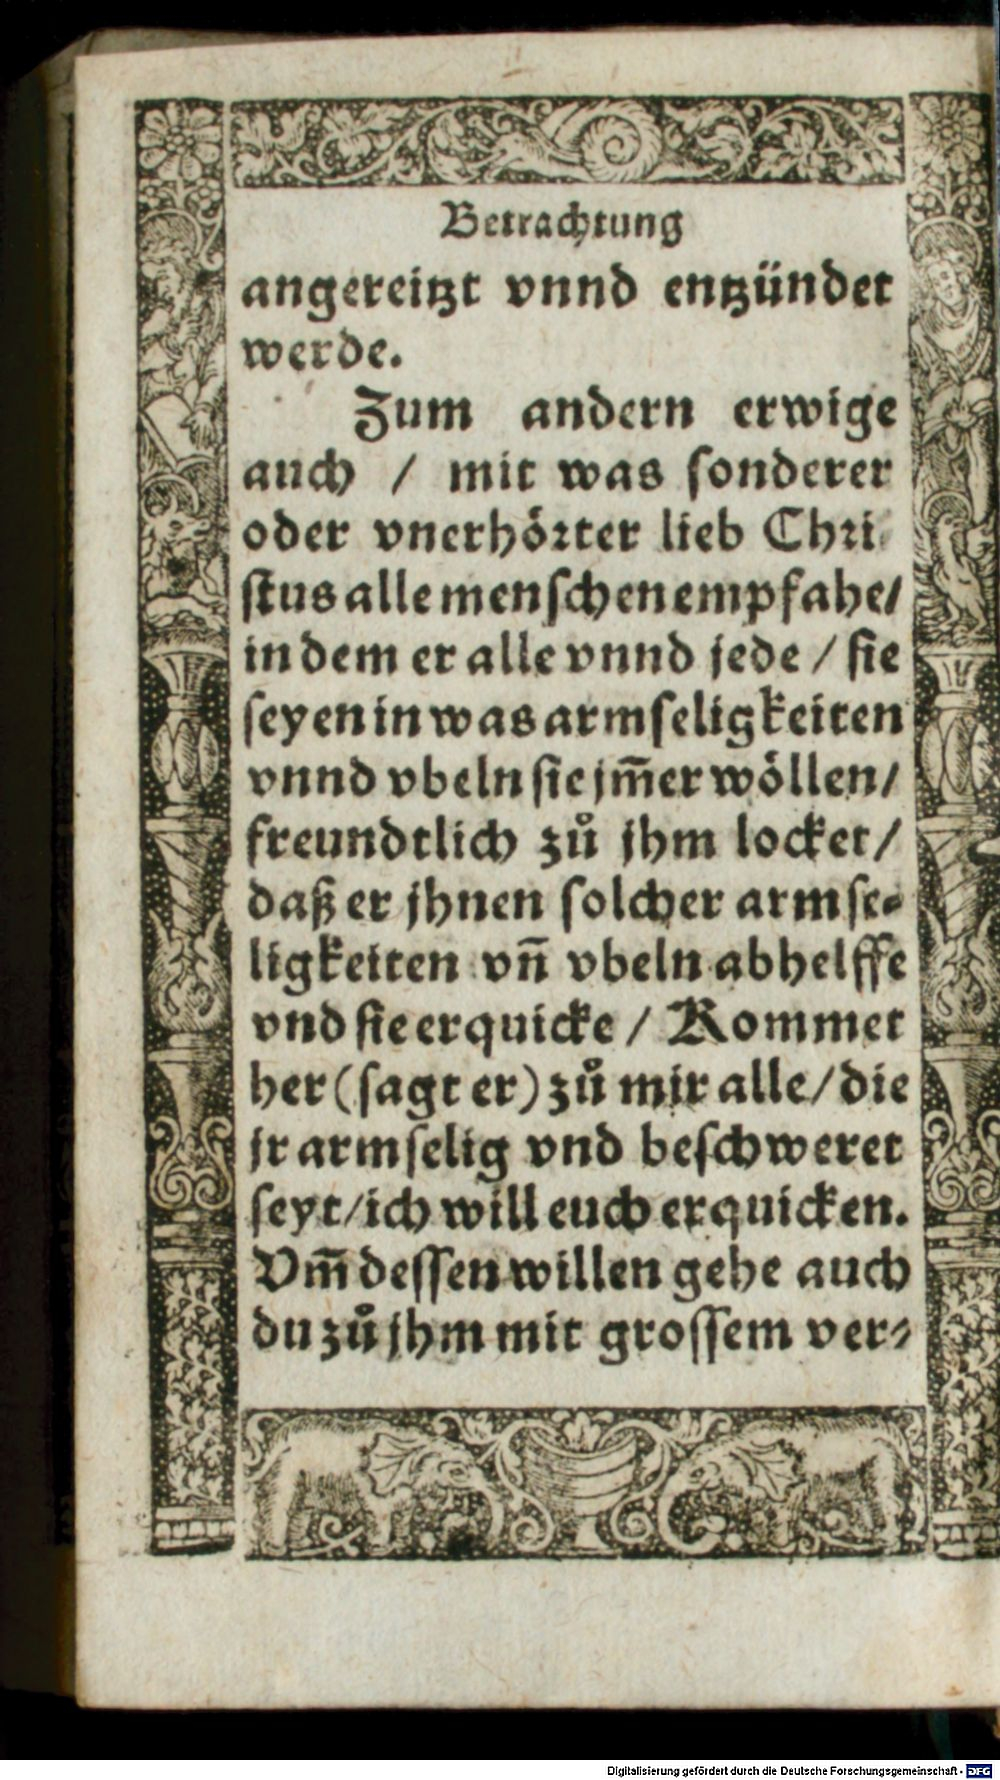 Betrachtung
angereitzt vnnd entzündet
werde.
Zum andern erwige
auch / mit was sonderer
oder vnerhörter lieb Chri
stus alle menschen empfahe/
in dem er alle vnnd jede / sie
seyen in was armseligkeiten
vnnd vbeln sie jm̄er wöllen/
freundtlich zů jhm locket/
daß er jhnen solcher armse-
ligkeiten vn̄ vbeln abhelffe
vnd sie erquicke / Kommet
her (sagt er) zů mir alle/die
jr armselig vnd beschweret
seyt/ich will euch erquicken.
Vm̄ dessen willen gehe auch
du zů jhm mit grossem ver-
Digitalisierung gefördert durch die Deutsche Forschungsgemeinschaft - DFG